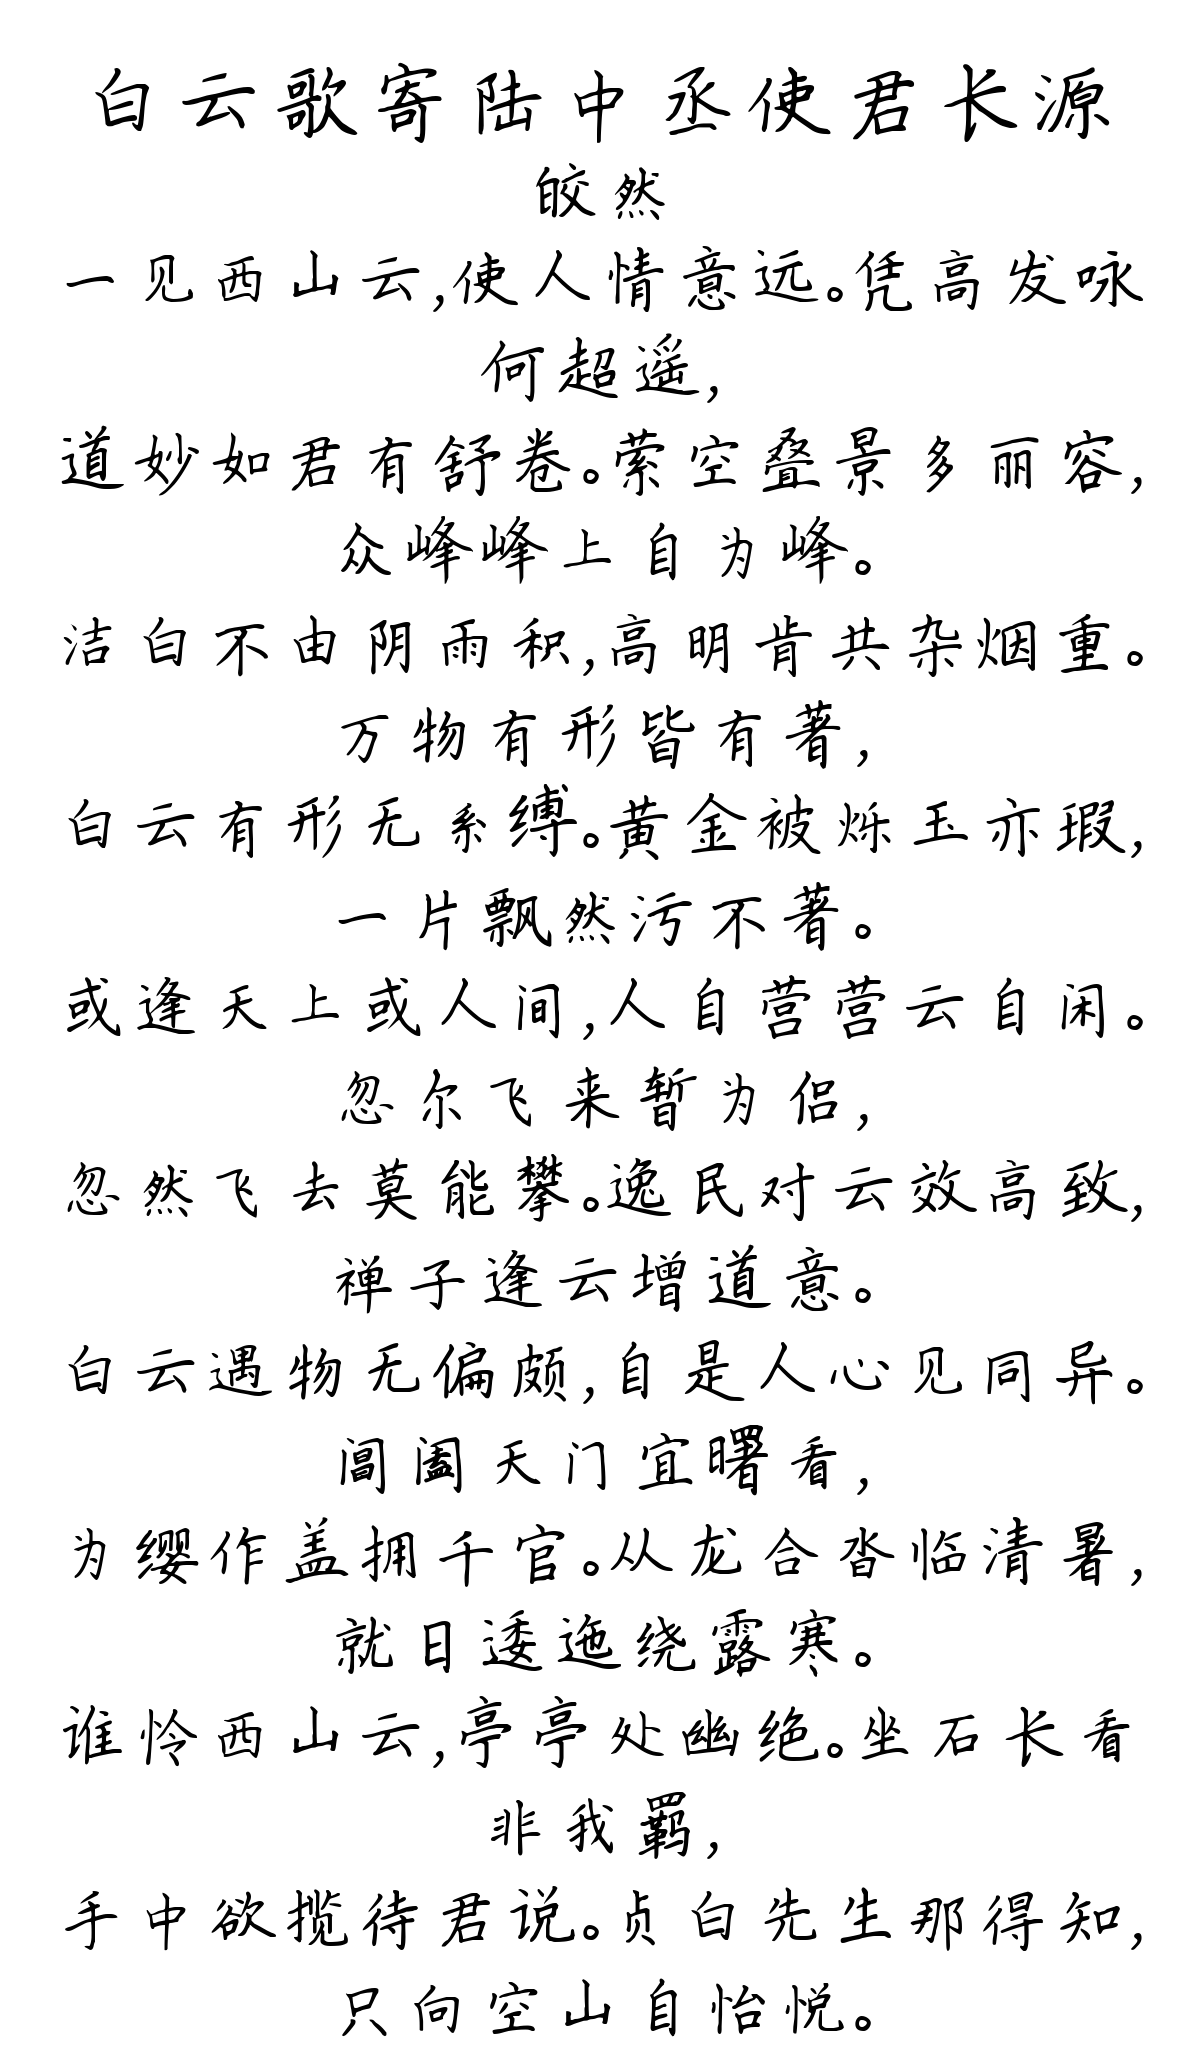 白云歌寄陆中丞使君长源
皎然
一见西山云,使人情意远。凭高发咏
何超遥,
道妙如君有舒卷。萦空叠景多丽容,
众峰峰上自为峰。
洁白不由阴雨积,高明肯共杂烟重。
万物有形皆有著,
白云有形无系缚。黄金被烁玉亦瑕,
一片飘然污不著。
或逢天上或人间,人自营营云自闲。
忽尔飞来暂为侣,
忽然飞去莫能攀。逸民对云效高致,
禅子逢云增道意。
白云遇物无偏颇,自是人心见同异。
阊阖天门宜曙看,
为缨作盖拥千官。从龙合沓临清暑,
就日逶迤绕露寒。
谁怜西山云,亭亭处幽绝。坐石长看
非我羁,
手中欲揽待君说。贞白先生那得知,
只向空山自怡悦。